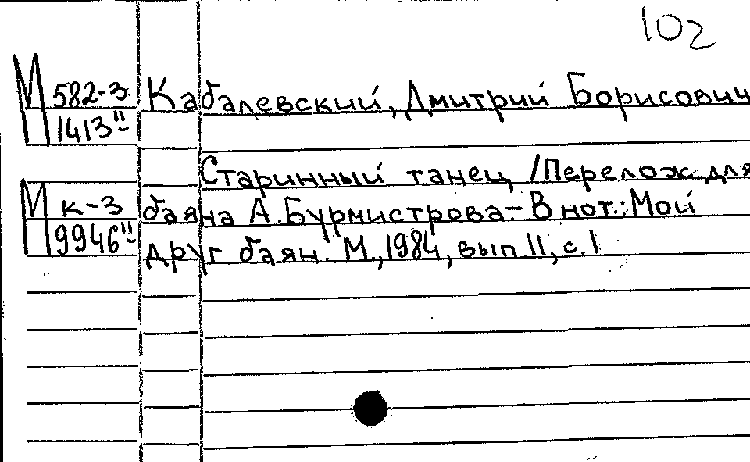 102
М 582-3 Кабалевский, Дмитрий Борисович
1413"
Старинный танец /Перелож. для
М к-3 баяна А. Бурмистрова - В нот.: Мой
9946" друг баян. М, 1984, вып 11, с. 1